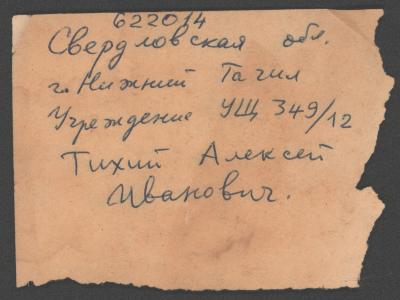 622014
Свердловская обл.
г. Нижний Тагил
Учреждение УЩ 349/12
Тихий Алексей
Иванович.